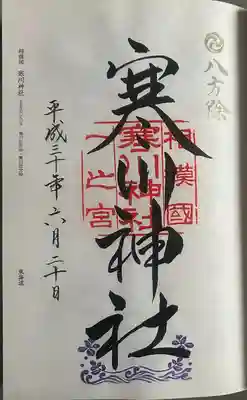 八方除
寒川神社
相模國
寒川神社
一之宮
平成三十年六月二十日
相模国 寒川神社
東海道